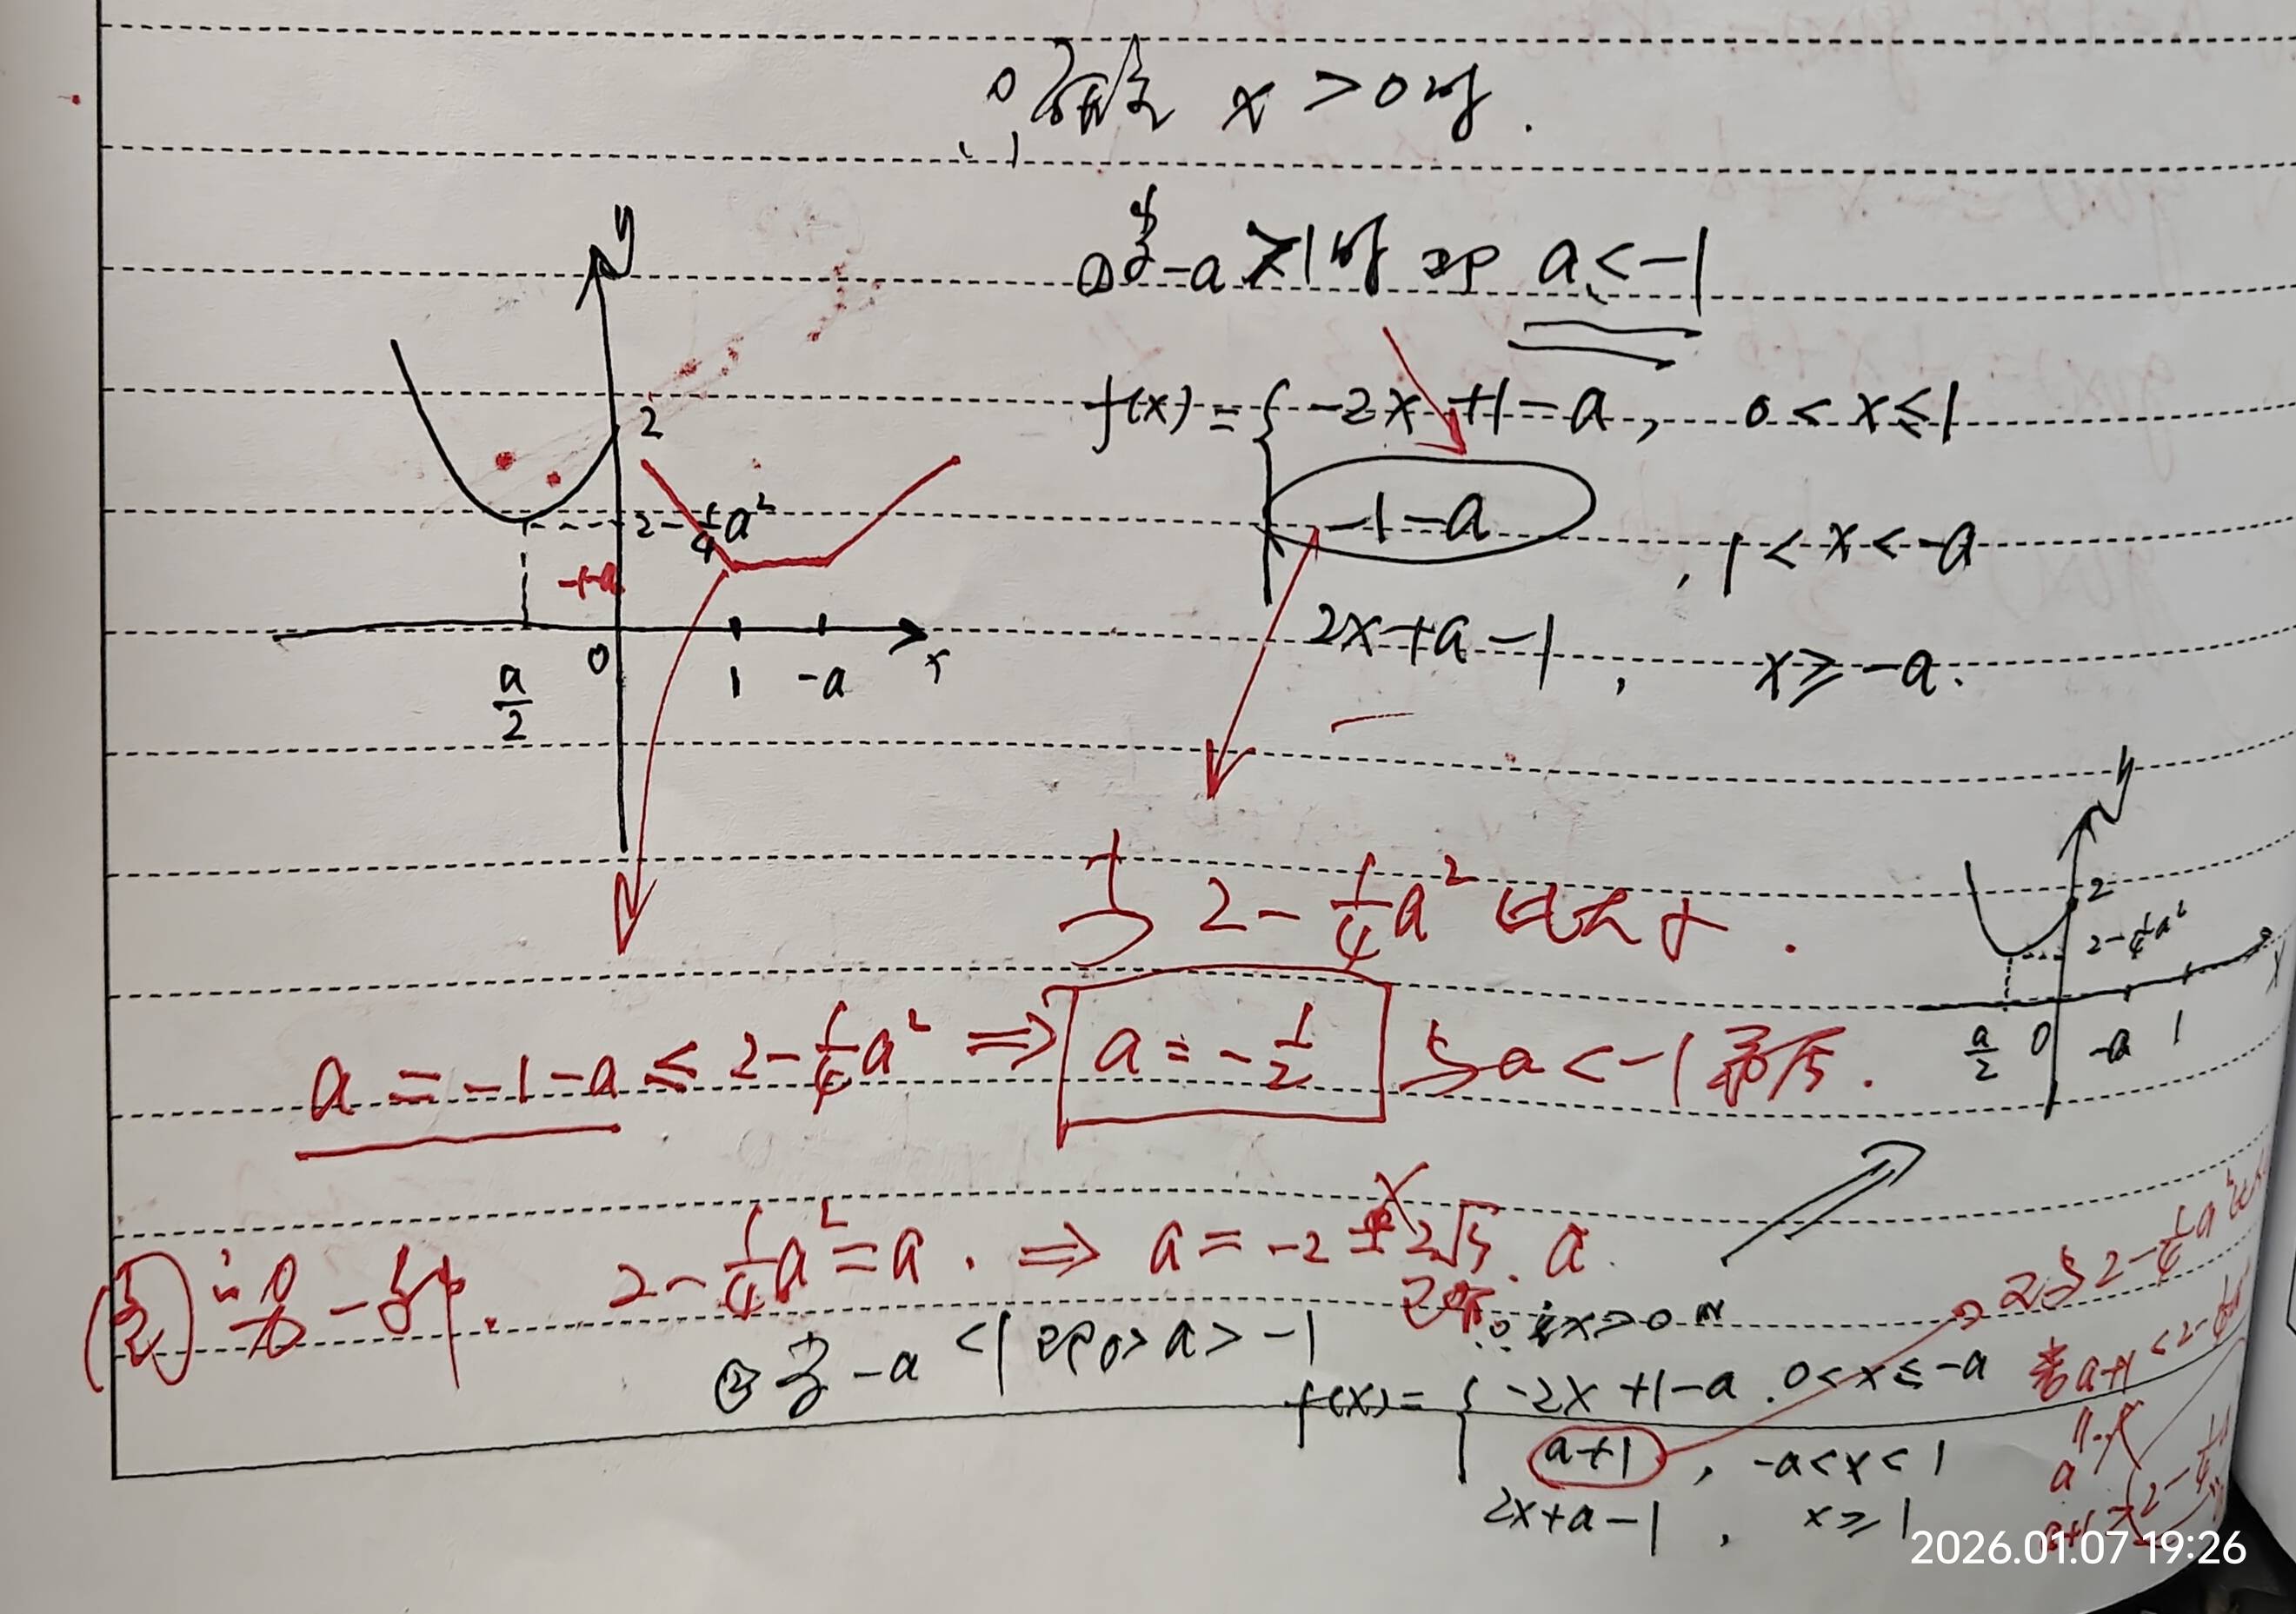 x > 0 时.
① 当 -a > 1 时 即 a < -1
f(x) = { -2x + 1 - a, 0 < x ≤ 1
-1 - a , 1 < x < -a
2x + a - 1 , x ≥ -a.
y
2
2 - 1/4 a²
-1-a
a/2 0 1 -a x
与 2 - 1/4 a² 比大小.
y
2
2 - 1/4 a²
a/2 0 -a 1 x
a = -1 - a ≤ 2 - 1/4 a² ⇒ a = -1/2 与 a < -1 矛盾.
另一种. 2 - 1/4 a² = a. ⇒ a = -2 ± 2√3. a
② 当 -a < 1 即 0 > a > -1
x > 0 时
f(x) = { -2x + 1 - a . 0 < x ≤ -a
a + 1 , -a < x < 1
2x + a - 1 , x ≥ 1
2与 2 - 1/4 a²
a+1 < 2 -
a
a+1 > 2 -
2026.01.07 19:26